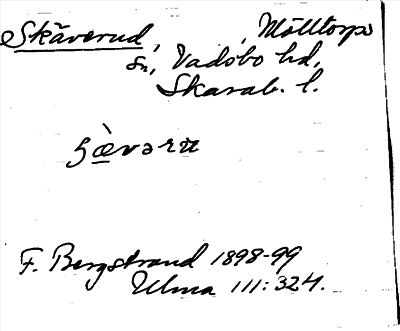 Skäverud, , Mölltorps
sn, Vadsbo hd,
Skarab. l.
ʃæ̀vərɯ
F. Bergstrand 1898-99
Ulma 111:324.